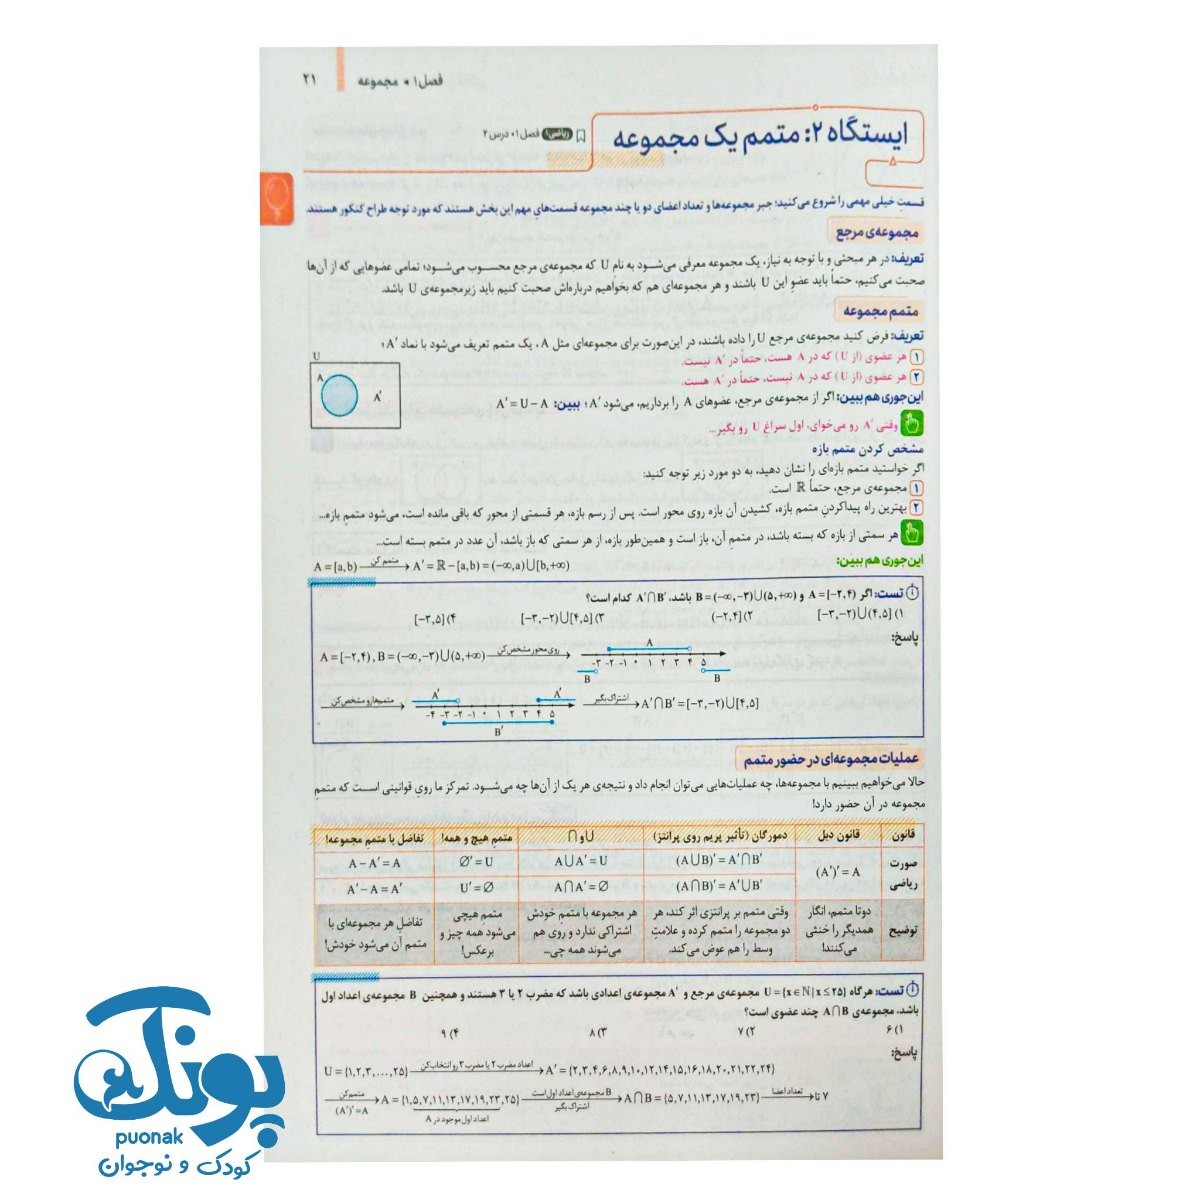 فصل ۱ • مجموعه ۲۱
ایستگاه ۲: متمم یک مجموعه
ریاضی۱ فصل ۱ • درس ۲
قسمت خیلی مهمی را شروع می‌کنید؛ جبر مجموعه‌ها و تعداد اعضای دو یا چند مجموعه قسمت‌های مهم این بخش هستند که مورد توجه طراح کنکور هستند.
مجموعه‌ی مرجع
تعریف: در هر مبحثی و با توجه به نیاز، یک مجموعه معرفی می‌شود به نام U که مجموعه‌ی مرجع محسوب می‌شود؛ تمامی عضوهایی که از آن‌ها
صحبت می‌کنیم، حتماً باید عضو این U باشند و هر مجموعه‌ای هم که بخواهیم درباره‌اش صحبت کنیم باید زیرمجموعه‌ی U باشد.
متمم مجموعه
تعریف: فرض کنید مجموعه‌ی مرجع U را داده باشند، در این‌صورت برای مجموعه‌ای مثل A، یک متمم تعریف می‌شود با نماد A′؛
۱ هر عضوی (از U) که در A هست، حتماً در A′ نیست.
۲ هر عضوی (از U) که در A نیست، حتماً در A′ هست.
U
A
A′
این‌جوری هم ببین: اگر از مجموعه‌ی مرجع، عضوهای A را برداریم، می‌شود A′؛ ببین: A′ = U − A
وقتی A′ رو می‌خوای، اول سراغ U رو بگیر...
مشخص کردن متمم بازه
اگر خواستید متمم بازه‌ای را نشان دهید، به دو مورد زیر توجه کنید:
۱ مجموعه‌ی مرجع، حتماً ℝ است.
۲ بهترین راه پیداکردن متمم بازه، کشیدن آن بازه روی محور است. پس از رسم بازه، هر قسمتی از محور که باقی مانده است، می‌شود متمم بازه...
هر سمتی از بازه که بسته باشد، در متمم آن، باز است و همین‌طور بازه، از هر سمتی که باز باشد، آن عدد در متمم بسته است...
این‌جوری هم ببین: A = [a,b) متمم کن → A′ = ℝ − [a,b) = (−∞,a)∪[b,+∞)
تست: اگر A = [−۲,۴) و B = (−∞,−۳)∪(۵,+∞) باشد، A′∩B′ کدام است؟
۱) [−۳,−۲)∪(۴,۵] ۲) (−۲,۴] ۳) [−۳,−۲)∪[۴,۵] ۴) [−۳,۵]
پاسخ:
A = [−۲,۴) , B = (−∞,−۳)∪(۵,+∞) روی محور مشخص کن →
A
−۳ −۲ −۱ ۰ ۱ ۲ ۳ ۴ ۵
B B
متمم‌ها رو مشخص کن →
A′ A′
−۴ −۳ −۲ −۱ ۰ ۱ ۲ ۳ ۴ ۵
B′
اشتراک بگیر → A′∩B′ = [−۳,−۲)∪[۴,۵]
عملیات مجموعه‌ای در حضور متمم
حالا می‌خواهیم ببینیم با مجموعه‌ها، چه عملیات‌هایی می‌توان انجام داد و نتیجه‌ی هر یک از آن‌ها چه می‌شود. تمرکز ما روی قوانینی است که متمم
مجموعه در آن حضور دارد!
قانون قانون دبل دمورگان (تأثیر پریم روی پرانتز) ∪ و ∩ متمم هیچ و همه! تفاضل با متمم مجموعه!
صورت ریاضی (A′)′ = A (A∪B)′ = A′∩B′ A∪A′ = U ∅′ = U A − A′ = A
(A∩B)′ = A′∪B′ A∩A′ = ∅ U′ = ∅ A′ − A = A′
توضیح
دوتا متمم، انگار
همدیگر را خنثی
می‌کنند!
وقتی متمم بر پرانتزی اثر کند، هر
دو مجموعه را متمم کرده و علامتِ
وسط را هم عوض می‌کند.
هر مجموعه با متمم خودش
اشتراکی ندارد و روی هم
می‌شوند همه چی...
متمم هیچی
می‌شود همه چیز و
برعکس!
تفاضل هر مجموعه‌ای با
متمم آن می‌شود خودش!
تست: هرگاه U = {x∈ℕ | x ≤ ۲۵} مجموعه‌ی مرجع و A′ مجموعه‌ی اعدادی باشد که مضرب ۲ یا ۳ هستند و همچنین B مجموعه‌ی اعداد اول
باشد، مجموعه‌ی A∩B چند عضوی است؟
۱) ۶ ۲) ۷ ۳) ۸ ۴) ۹
پاسخ:
U = {1,2,3,...,25} اعداد مضرب ۲ یا مضرب ۳ رو انتخاب کن → A′ = {2,3,4,6,8,9,10,12,14,15,16,18,20,21,22,24}
متمم کن (A′)′=A → A = {1,5,7,11,13,17,19,23,25} B مجموعه‌ی اعداد اول است اشتراک بگیر → A∩B = {5,7,11,13,17,19,23} تعداد اعضا → ۷ تا
اعداد اول موجود در A
پونک
puonak
کودک و نوجوان